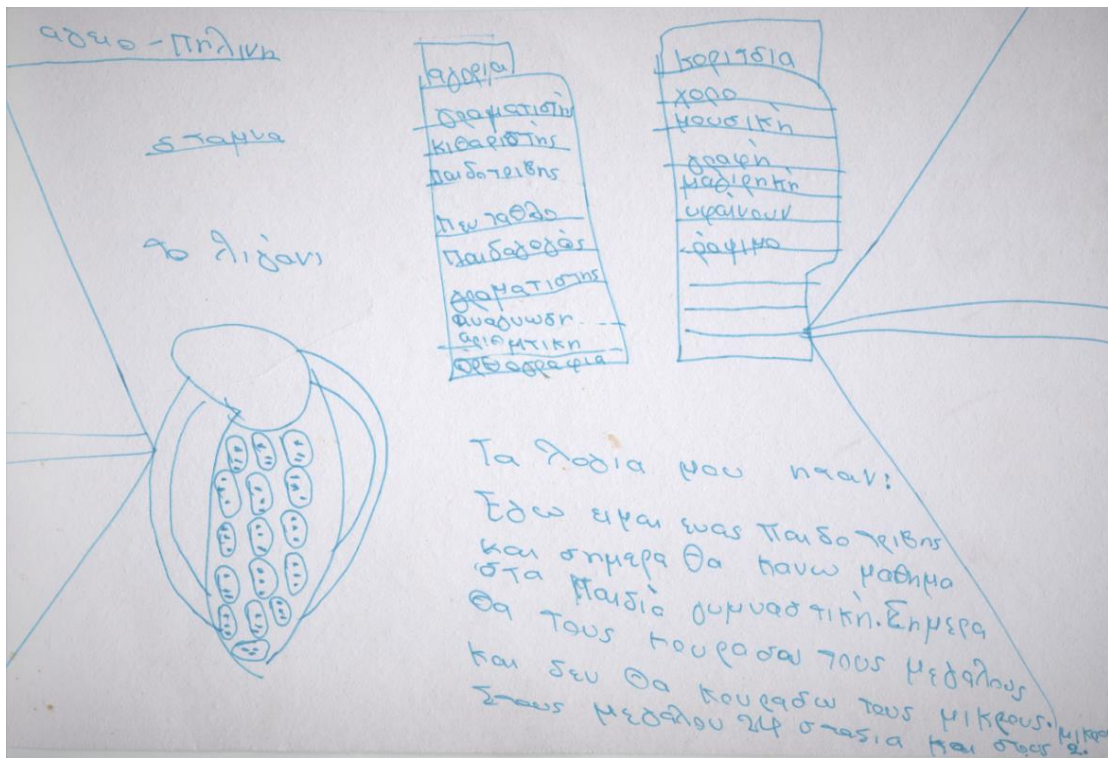 αγειο - Πηλινη
σταμνα
το λιγάνι
αγορια
γραματιστή
κιθαριστής
παιδοτριβης
Πενταθλο
παιδαγογός
γραματιστης
αναγνωση
αριθμτικη
ορθογραφια
κοριτσια
χορο
μουσικη
γραφή
μαγιρηκή
υφαίνουν
ράψιμο
Τα λογια μου ηταν:
Εγω ειμαι ενας παιδοτριβης
και σημερα θα κανω μαθημα
στα Παιδιά γυμναστική. Σημερα
θα τους κουρασω τους μεγαλους
και δεν θα κουρασω τους μικρους.
Στους μεγαλου 24 σταδια και στους μικρου 2.